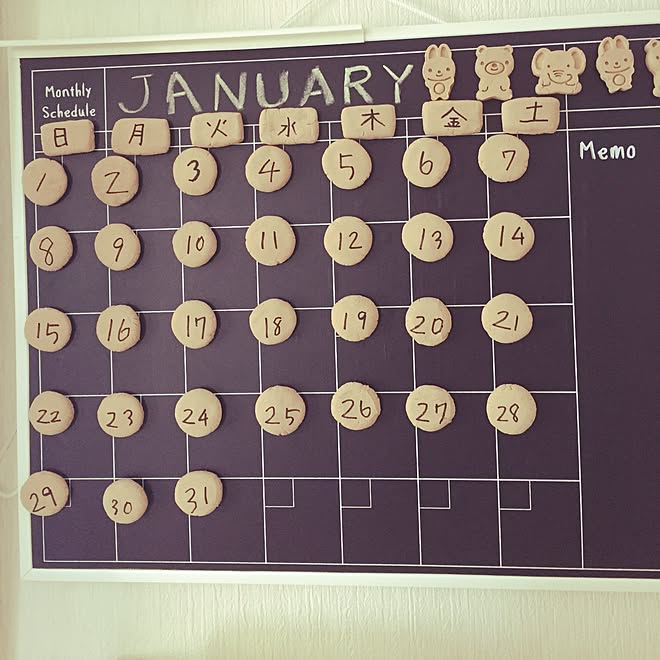 Monthly
Schedule
JANUARY
日 月 火 水 木 金 土
Memo
1 2 3 4 5 6 7
8 9 10 11 12 13 14
15 16 17 18 19 20 21
22 23 24 25 26 27 28
29 30 31